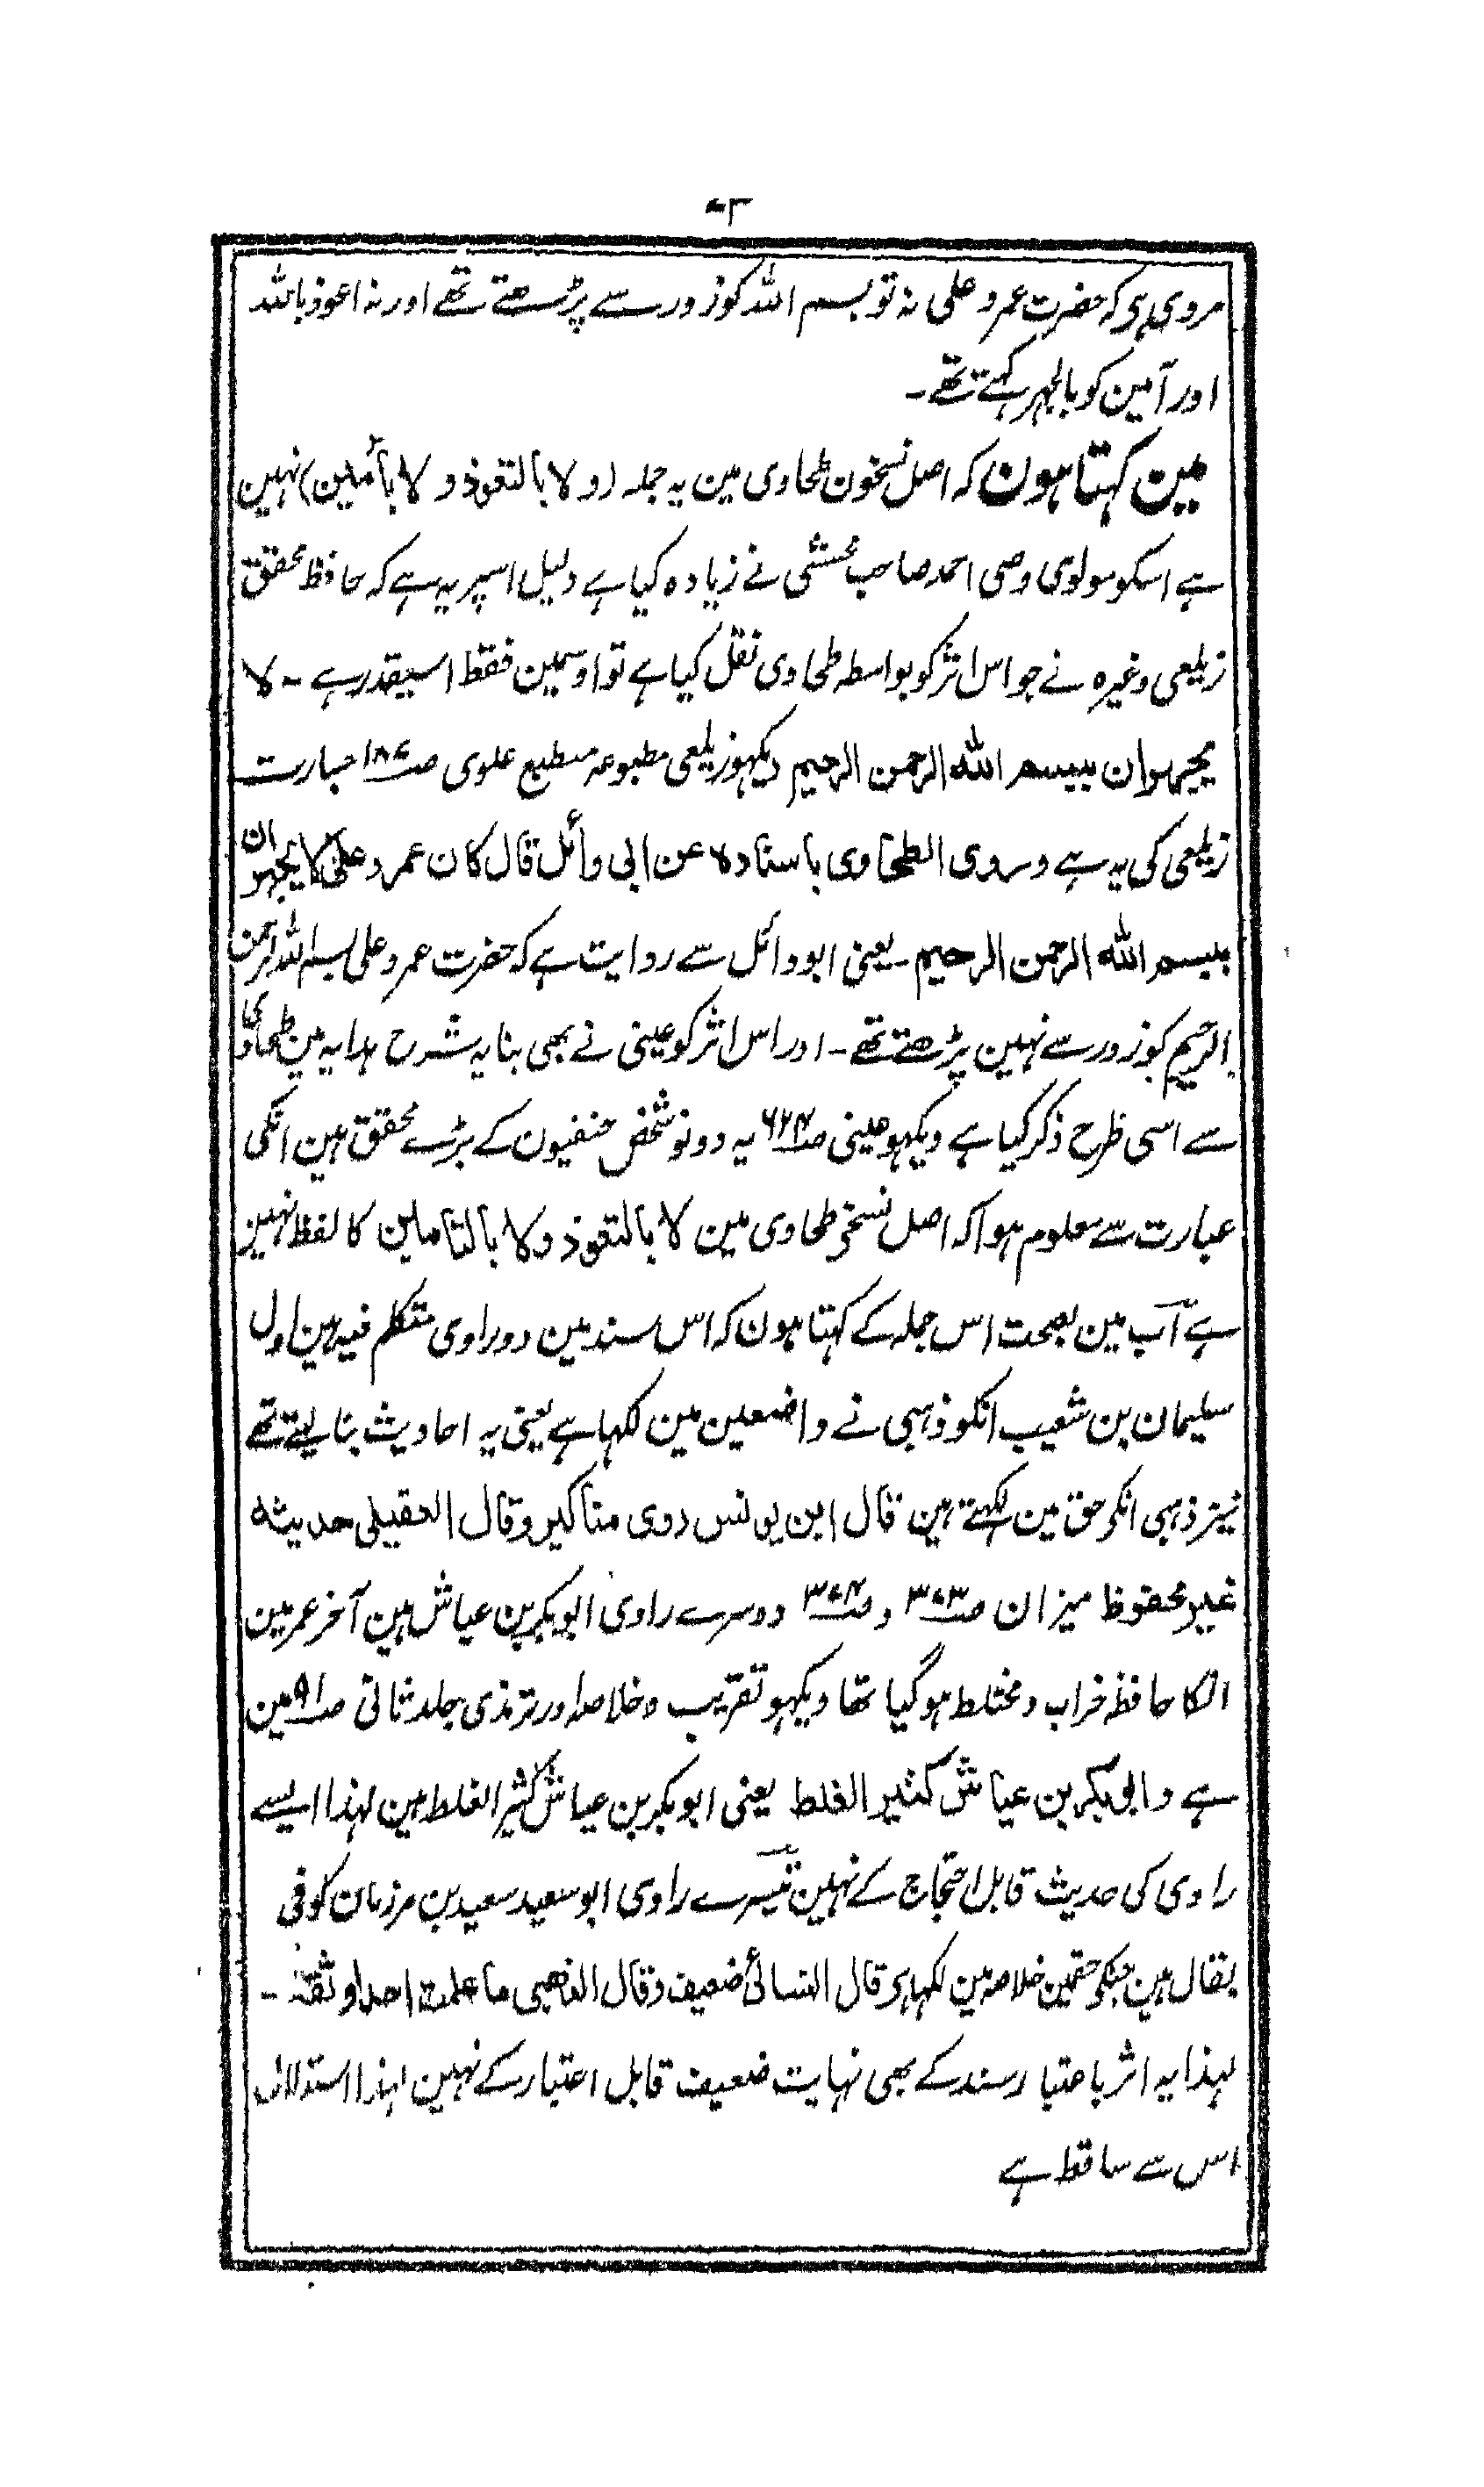 مروی ہی کہ حضرت عمر و علی نہ تو بسم اللہ کو زور سے پڑھتے تھے اور نہ اعوذ باللہ
اور آمین کو بالجہر کہتے تھے ۔
مین کہتا ہون کہ اصل نسخون طحاوی مین یہ جملہ (ولا بالتعوذ ولا بآملین) نہین
ہے اسکو مولوی وصی احمد صاحب محشی نے زیادہ کیا ہے دلیل اسپر یہ ہے کہ حافظ محقق
زیلعی وغیرہ نے جو اس اثر کو بواسطہ طحاوی نقل کیا ہے تو اوسمین فقط اسیقدر ہے ۔ لا
یجہران ببسم اللہ الرحمن الرحیم دیکہو زیلعی مطبوعہ مطبع علوی صـ۱۸۷ عبارت
زیلعی کی یہ ہے وروی الطحاوی باسنادہ عن ابی وائل قال کان عمر و علی لا یجہران
ببسم اللہ الرحمن الرحیم یعنی ابو وائل سے روایت ہے کہ حضرت عمر و علی بسم اللہ الرحمن
الرحیم کو زور سے نہین پڑھتے تھے ۔ اور اس اثر کو عینی نے بھی بنایہ شرح ہدایہ مین طحاوی
سے اسی طرح ذکر کیا ہے دیکہو عینی صـ۶۲۴ یہ دونو شخص حنفیون کے بڑے محقق ہین انکی
عبارت سے معلوم ہوا کہ اصل نسخہ طحاوی مین لا بالتعوذ ولا بالتاملین کا لفظ نہین
ہے اب مین بصحت اس جملہ کے کہتا ہون کہ اس سند مین دو راوی متکلم فیہ ہین اول
سلیمان بن شعیب انکو ذہبی نے واضعین مین لکہا ہے یعنی یہ احادیث بنا لیتے تھے
نیز ذہبی انکے حق مین لکہتے ہین قال ابن یونس روی مناکیر وقال العقیلی حدیثہ
غیر محفوظ میزان صـ۳۷۳ و صـ۳۷۴ دوسرے راوی ابوبکر بن عیاش ہین آخر عمر مین
انکا حافظہ خراب و مختلط ہو گیا تھا دیکہو تقریب و خلاصہ اور ترمذی جلد ثانی صـ۹۱ مین
ہے وابی بکر بن عیاش کثیر الغلط یعنی ابوبکر بن عیاش کثیر الغلط ہین لہذا ایسے
راوی کی حدیث قابل احتجاج کے نہین تیسرے راوی ابو سعید سعید بن مرزبان کوفی
بقال ہین جنکے حقمین خلاصہ مین لکہا ہی قال النسائی ضعیف وقال الذھبی ما علمت احدا وثقہ ۔
لہذا یہ اثر باعتبار سند کے بھی نہایت ضعیف قابل اعتبار کے نہین لہذا استدلال
اس سے ساقط ہے